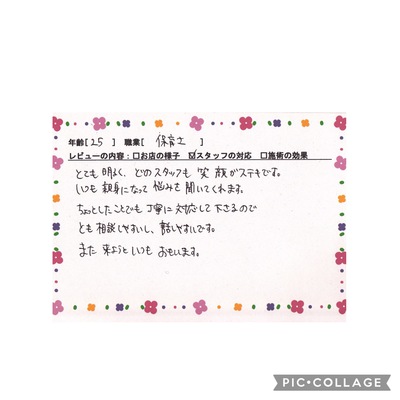 年齢[ 25 ] 職業[ 保育士 ]
レビューの内容：□お店の様子 ☑スタッフの対応 □施術の効果
とても明るく、どのスタッフも 笑顔がステキです。
いつも親身になって悩みも聞いてくれます。
ちょっとしたことでも丁寧に対応して下さるので
とも相談しやすいし、話しやすいです。
また来ようといつもおもいます。
PIC•COLLAGE